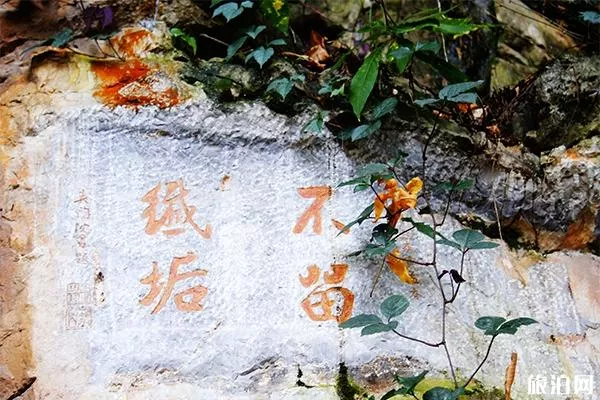 不留
纖垢
旅泊网